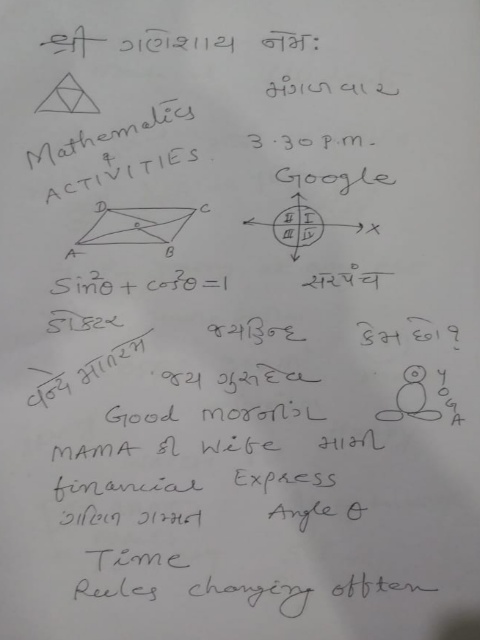 श्री गणेशाय नमः
મંગળવાર
Mathematics
&
ACTIVITIES.
3.30 p.m.
Google
D C
A B
II I
III IV X
sin²θ + cos²θ = 1
સરપંચ
ડોક્ટર
જયહિન્દ
કેમ છો?
વન્દે માતરમ
જય ગુરુદેવ
Y
O
G
A
Good morનીંગ
MAMA की wife મામી
financial Express
ગણિત ગમ્મત
Angle θ
Time
Rules changing offten